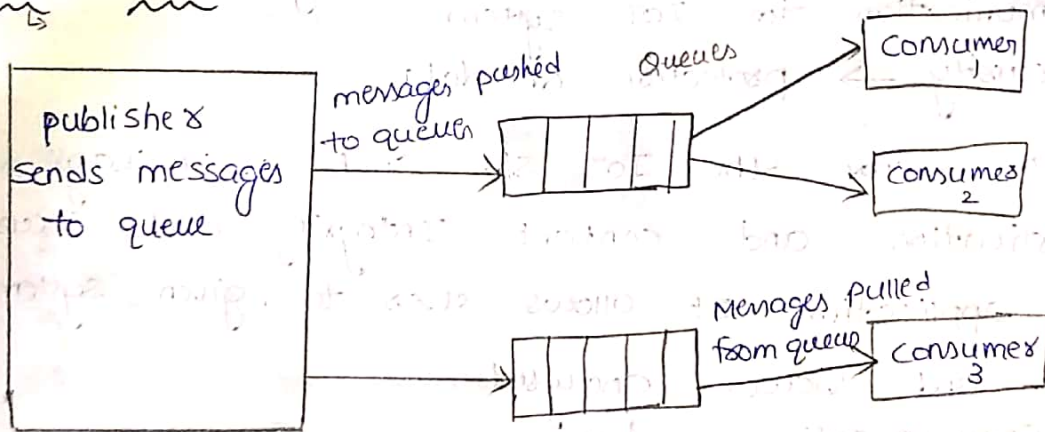 publisher
sends messages
to queue
messages pushed
to queues
Queues
Consumer
1
Consumer
2
Messages Pulled
from queue
Consumer
3